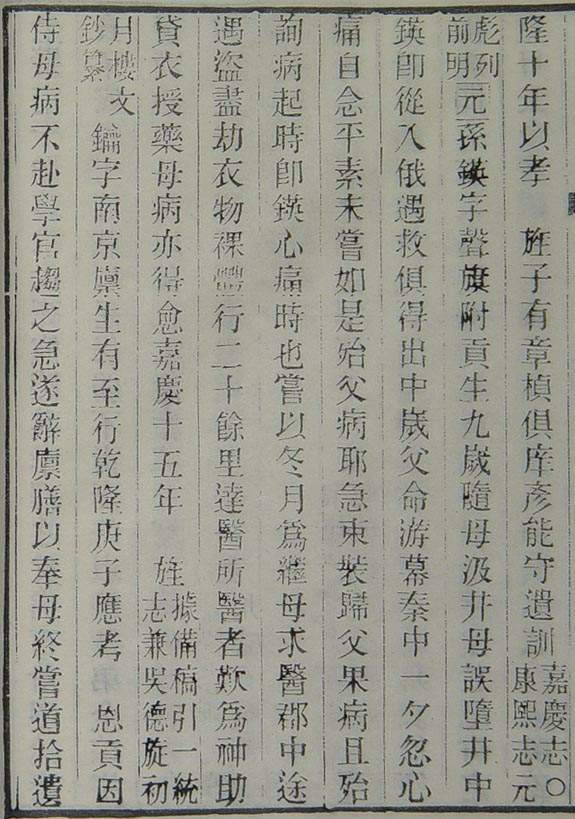 隆十年以孝　旌子有章楨俱庠彥能守遺訓嘉慶志○康熙志元
彪列前明元孫鍈字聲旗附貢生九歲隨母汲井母誤墮井中
鍈卽從入俄遇救俱得出中歲父命游幕秦中一夕忽心
痛自念平素未嘗如是殆父病耶急束裝歸父果病且殆
詢病起時卽鍈心痛時也嘗以冬月爲繼母求醫郡中途
遇盜盡劫衣物裸行二十餘里達醫所醫者歎爲神助
貸衣授藥母病亦得愈嘉慶十五年　旌據備稿引一統志兼吳德旋初
月樓文鈔纂　鑰字南京廩生有至行乾隆庚子應考　恩貢因
侍母病不赴學官趨之急遂辭廩膳以奉母終嘗道拾遺